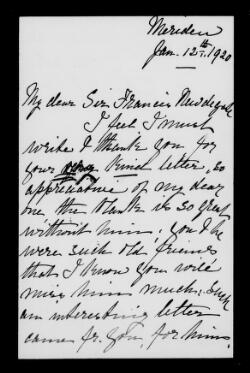 Meriden
Jan. 12th. 1920
My dear Sir Francis Newdegate
I feel I must
write & thank you for
your very kind letter, so
appreciative of my dear
one, the blank is so great
without him. You & he
were such old friends
that I know you will
miss him much. Such
an interesting letter
came fr. you, for him